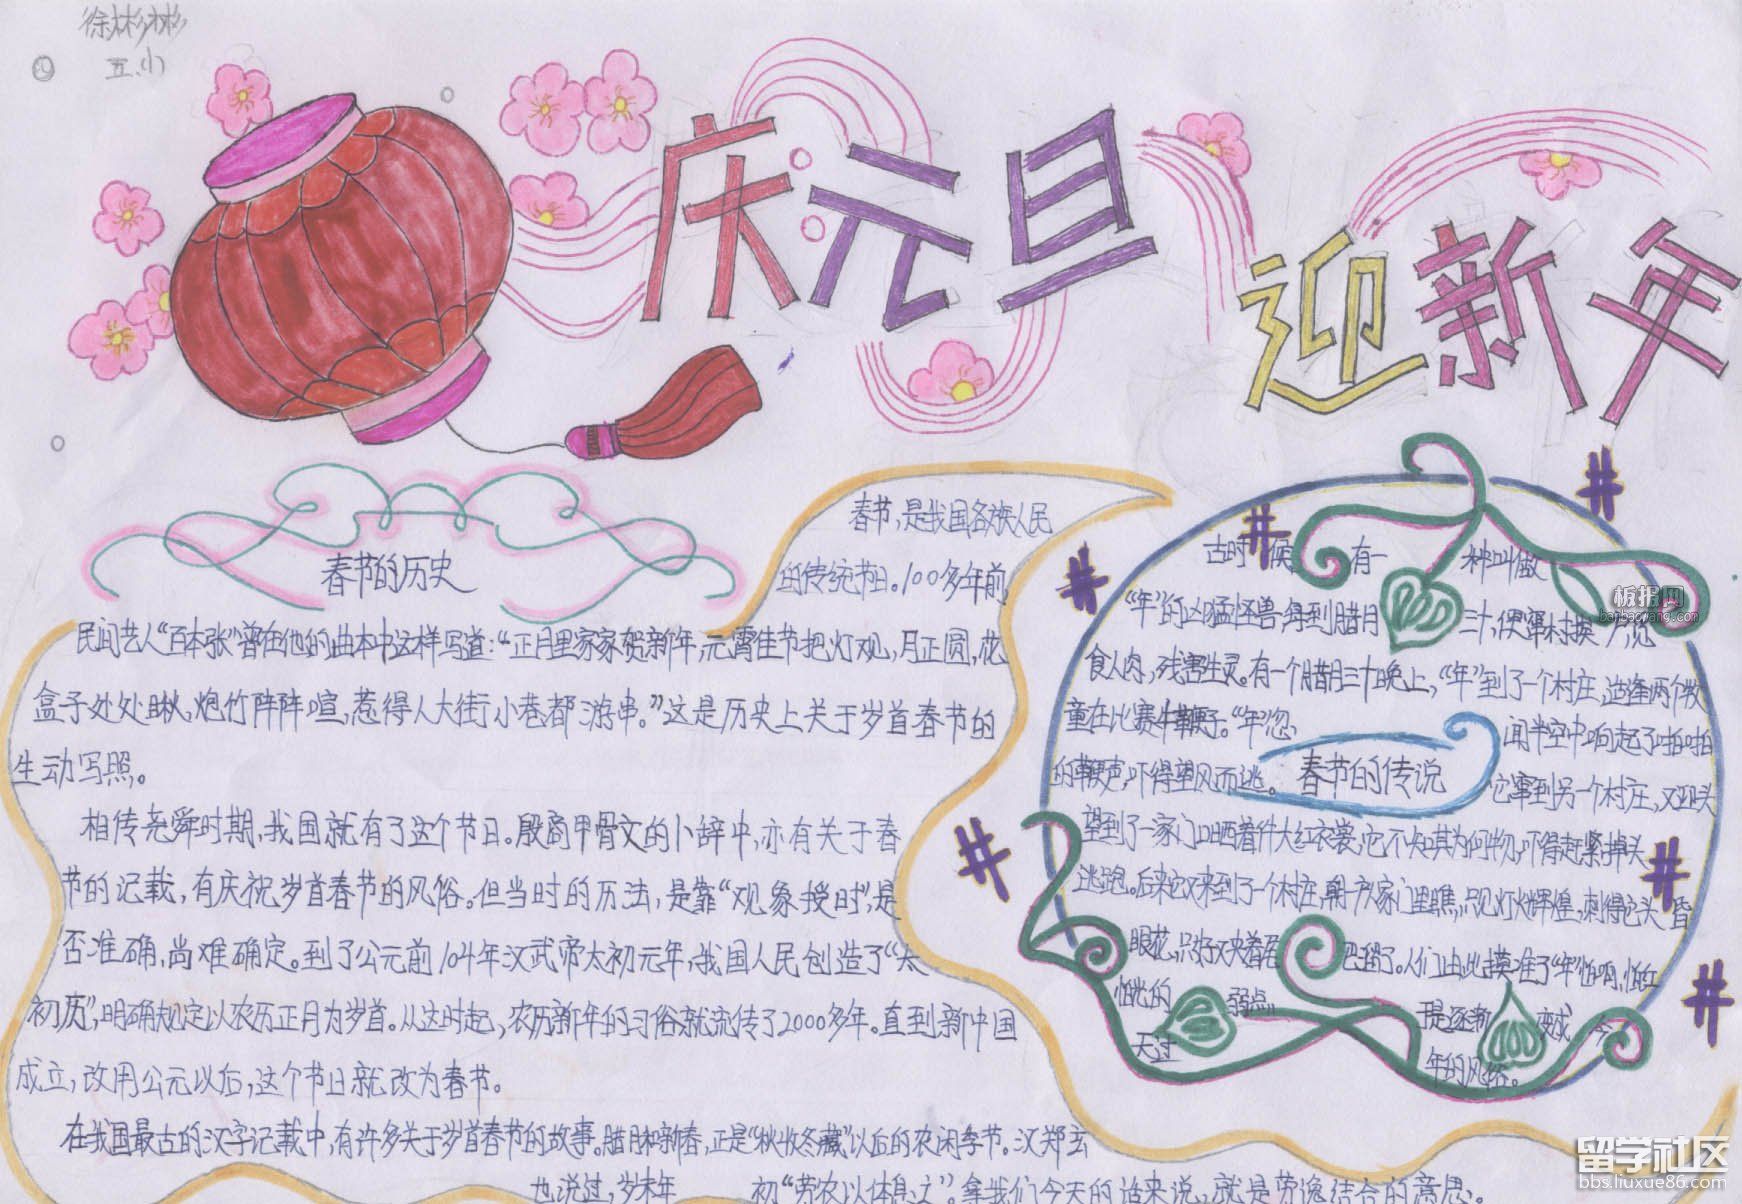 徐彬彬
五.小
庆元旦
迎新年
春节的历史
春节,是我国各族人民
的传统节日。100多年前
民间艺人“百本张”曾在他的曲本中这样写道:“正月里家家贺新年,元宵佳节把灯观,月正圆,花
盒子处处瞅,炮竹阵阵喧,惹得人大街小巷都游串。”这是历史上关于岁首春节的
生动写照。
相传尧舜时期,我国就有了这个节日。殷商甲骨文的卜辞中,亦有关于春
节的记载,有庆祝岁首春节的风俗。但当时的历法,是靠“观象授时”,是
否准确,尚难确定。到了公元前104年汉武帝太初元年,我国人民创造了“太
初历”,明确规定以农历正月为岁首。从这时起,农历新年的习俗就流传了2000多年。直到新中国
成立,改用公元以后,这个节日就改为春节。
在我国最古的汉字记载中,有许多关于岁首春节的故事。腊月和新春,正是“秋收冬藏”以后的农闲季节。汉郑玄
也说过,岁末年初“劳农以休息之”。拿我们今天的话来说,就是劳逸结合的意思。
古时候有一种叫做
“年”的凶猛怪兽,每到腊月三十,便窜村挨户,觅
食人肉,残害生灵。有一个腊月三十晚上,“年”到了一个村庄,适逢两个牧
童在比赛牛鞭子。“年”忽闻半空中响起了啪啪
的鞭声,吓得望风而逃。
春节的传说
它窜到另一个村庄,又迎头
望到了一家门口晒着件大红衣裳,它不知其为何物,吓得赶紧掉头
逃跑。后来它又来到了一个村庄,朝一户家门里瞧,只见灯火辉煌,刺得它头昏
眼花,只好夹着尾巴溜了。人们由此摸准了“年”怕响,怕红
怕光的弱点
于是逐渐变成今
天过年的风俗。
板报网
banbaowang.com
留学社区
bbs.liuxue86.com